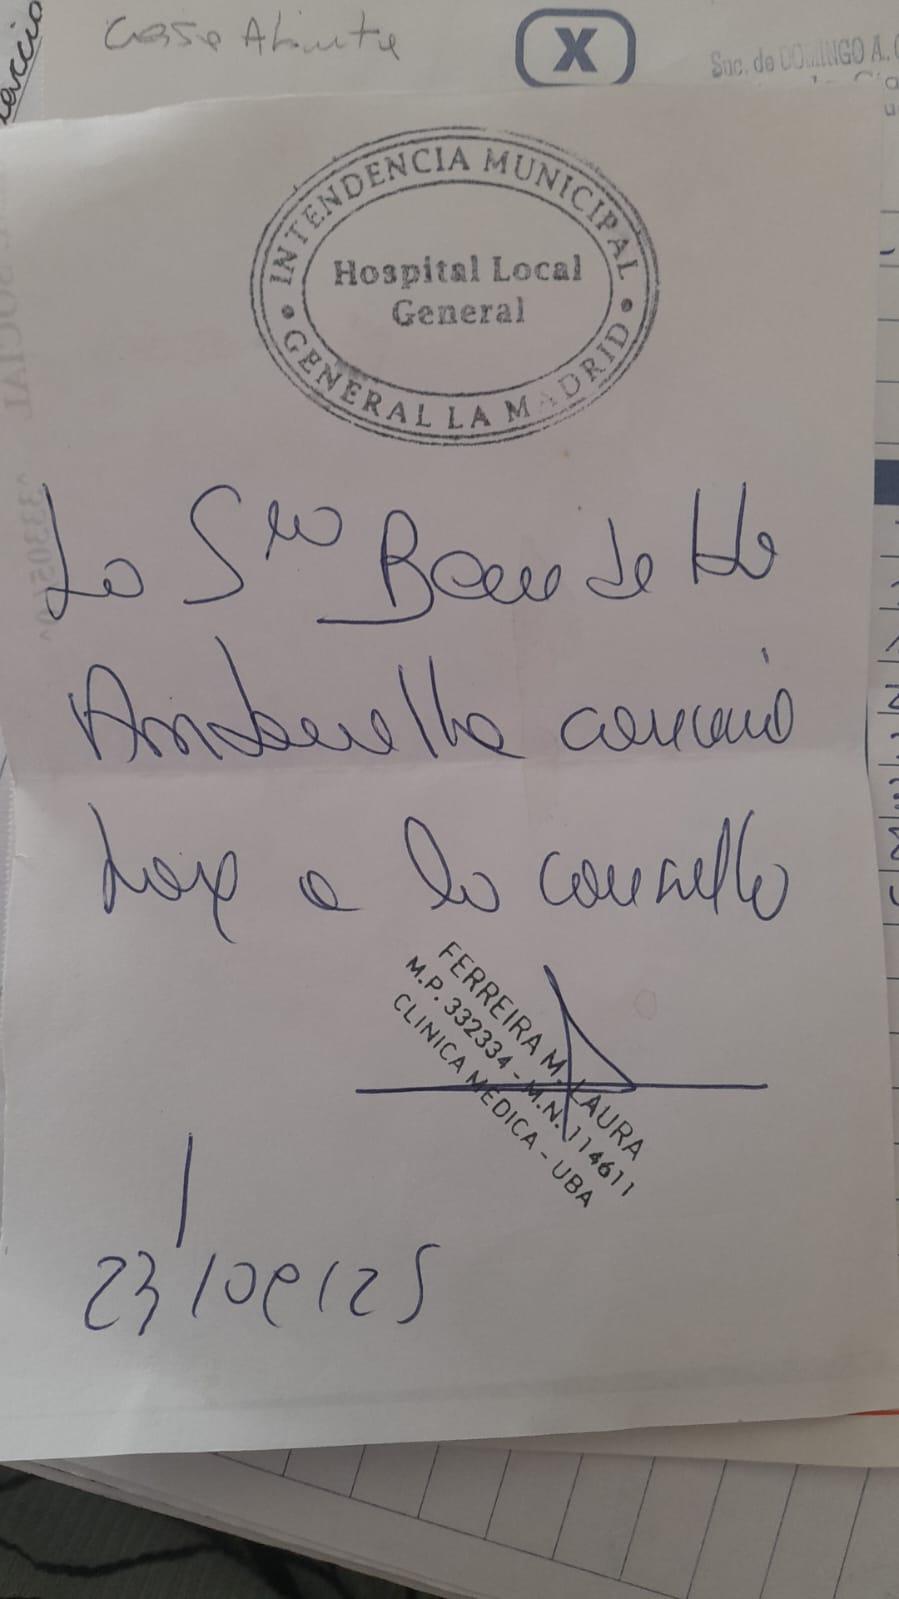 Casa Abierta
X
Suc. de DOMINGO A.
INTENDENCIA MUNICIPAL
Hospital Local
General
GENERAL LA MADRID
La Sra Benedetto
Antonella concurrió
hoy a la consulta
FERREIRA M. LAURA
M.P. 332334 - M.N. 114611
CLINICA MEDICA - UBA
23/09/25